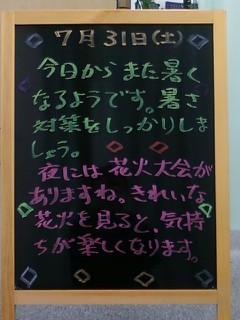 7月31日(土)
今日からまた暑く
なるようです。暑さ
対策をしっかりしま
しょう。
夜には花火大会が
ありますね。きれいな
花火を見ると、気持
ちが楽しくなります。